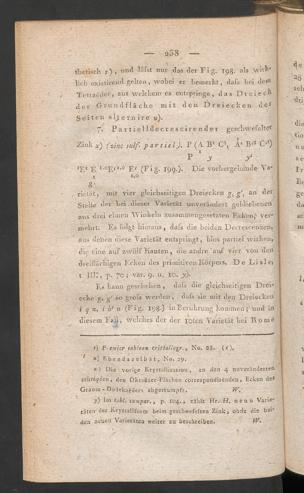 — 238 —
thetisch z), und läſst nur das der Fig. 198. als wirk-
lich existirend gelten, wobei er bemerkt, daſs bei dem
Tetraeder, aus welchem es entspringe, das Dreieck
der Grundfläche mit den Dreiecken der
Seiten alternire u).
7. Partielldecrescirender geschwefelter
Zink x) (zinc sulf. partiel). P (A B¹ C¹, A¹ B² C¹)
P y y'
¹E¹ E (Fig. 199.). Die vorhergehende Va-
g
rietät, mit vier gleichseitigen Dreiecken g, g', an der
Stelle der bei dieser Varietät unverändert gebliebenen
aus drei ebnen Winkeln zusammengesetzten Ecken, ver-
mehrt. Es folgt hieraus, daſs die beiden Decrescenzen,
aus denen diese Varietät entspringt, blos partiel wirken,
die eine auf zwölf Kanten, die andre auf vier von den
dreiflächigen Ecken des primitiven Körpers. De Lisle,
t III, p. 70; var. 9. u. 10. y).
Es kann geschehen, daſs die gleichseitigen Drei-
ecke g, g' so groſs werden, daſs sie mit den Dreiecken
i g n, i' b' n (Fig. 198.) in Berührung kommen; und in
diesem Fall, welches der der 10ten Varietät bei Romé
No. 28.
u) Ebendaselbst, No. 29.
x) Die vorige Krystallisation, an den 4 unveränderten
schärfsten, den Oktäeder-Flächen correspondirenden, Ecken des
Granat-Dodekaëders abgestumpft. W.
y) Im tabl. compar., p. 104., zählt Hr. H. neun Varie-
täten des Krystallisirten beim geschwefelten Zink, ohne die bei-
den neuen Varietäten weiter zu beschreiben. W.